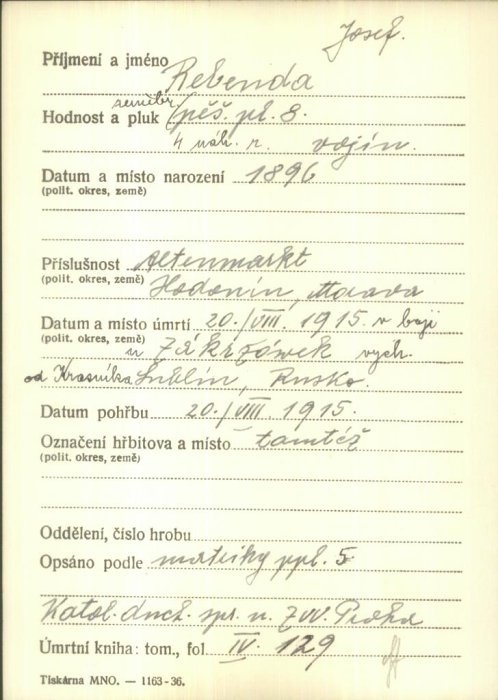 Josef.
Příjmení a jméno Rebenda
Hodnost a pluk zeměbr. pěš. pl. 8.
4 náh. r. vojín.
Datum a místo narození 1896
(polit. okres, země)
Příslušnost Altenmarkt
(polit. okres, země) Hodonín, Morava
Datum a místo úmrtí 20./VIII. 1915 v boji
(polit. okres, země) u Zákrzówek vých.
od Krasnika Lublin, Rusko.
Datum pohřbu 20./VIII. 1915.
Označení hřbitova a místo tamtéž
(polit. okres, země)
Oddělení, číslo hrobu
Opsáno podle matriky ppl. 5
Katol. duch. spr. u ZVV. Praha
Úmrtní kniha: tom., fol. IV. 129
Tiskárna MNO. — 1163-36.